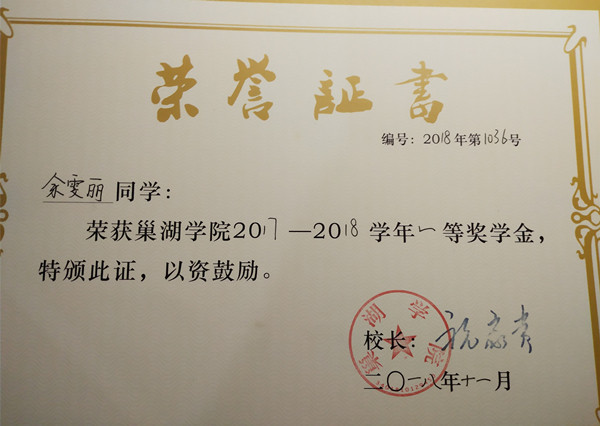 荣誉証書
编号：2018年第1036号
余雯丽同学：
荣获巢湖学院2017—2018学年一等奖学金，
特颁此证，以资鼓励。
巢湖学院
校长：
二〇一八年十一月